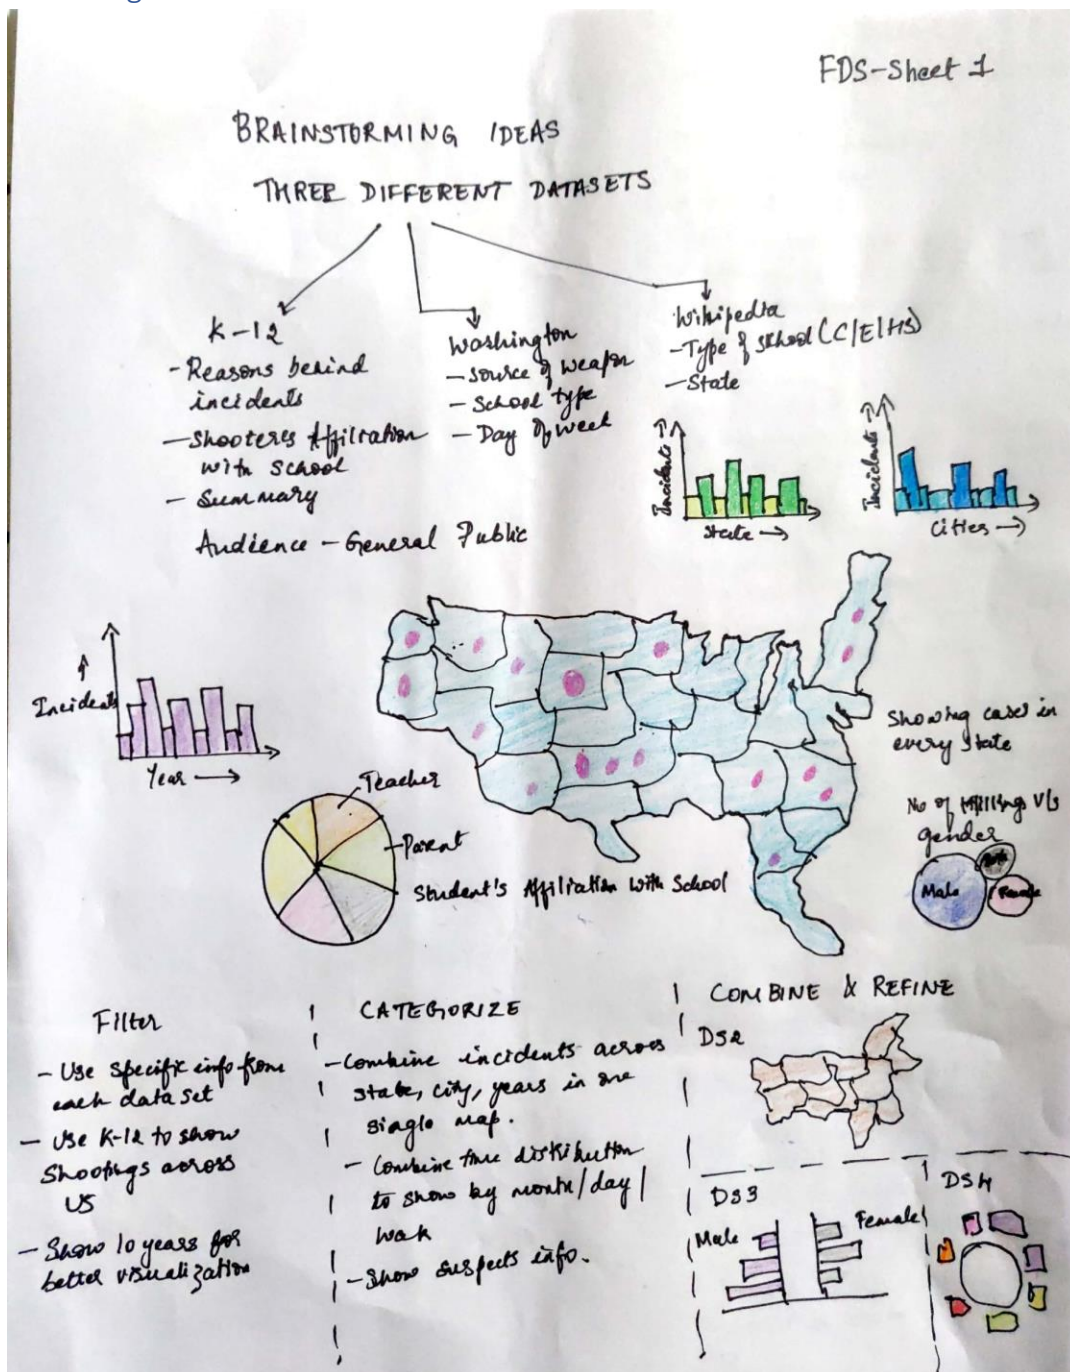 FDS-Sheet 1
BRAINSTORMING IDEAS
THREE DIFFERENT DATASETS
K-12
- Reasons behind
incidents
- Shooteres Affiliation
with school
- Summary
Washington
- Source of weapon
- School type
- Day of week
Wikipedia
- Type of school (C/E/HS)
- State
Audience - General Public
Incidents →
State →
Incidents →
Cities →
Incidents
Year →
Teacher
Parent
Student's Affiliation with School
Showing cases in
every state
No of killing V/s
gender
Male
Female
Filter
- Use specific info from
each data set
- Use K-12 to show
Shootings across
US
- Show 10 years for
better visualization
CATEGORIZE
- Combine incidents across
state, city, years in one
single map.
- Combine time distribution
to show by month/day/
week
- Show suspects info.
COMBINE & REFINE
DS2
DS3
Male
Female
DS4